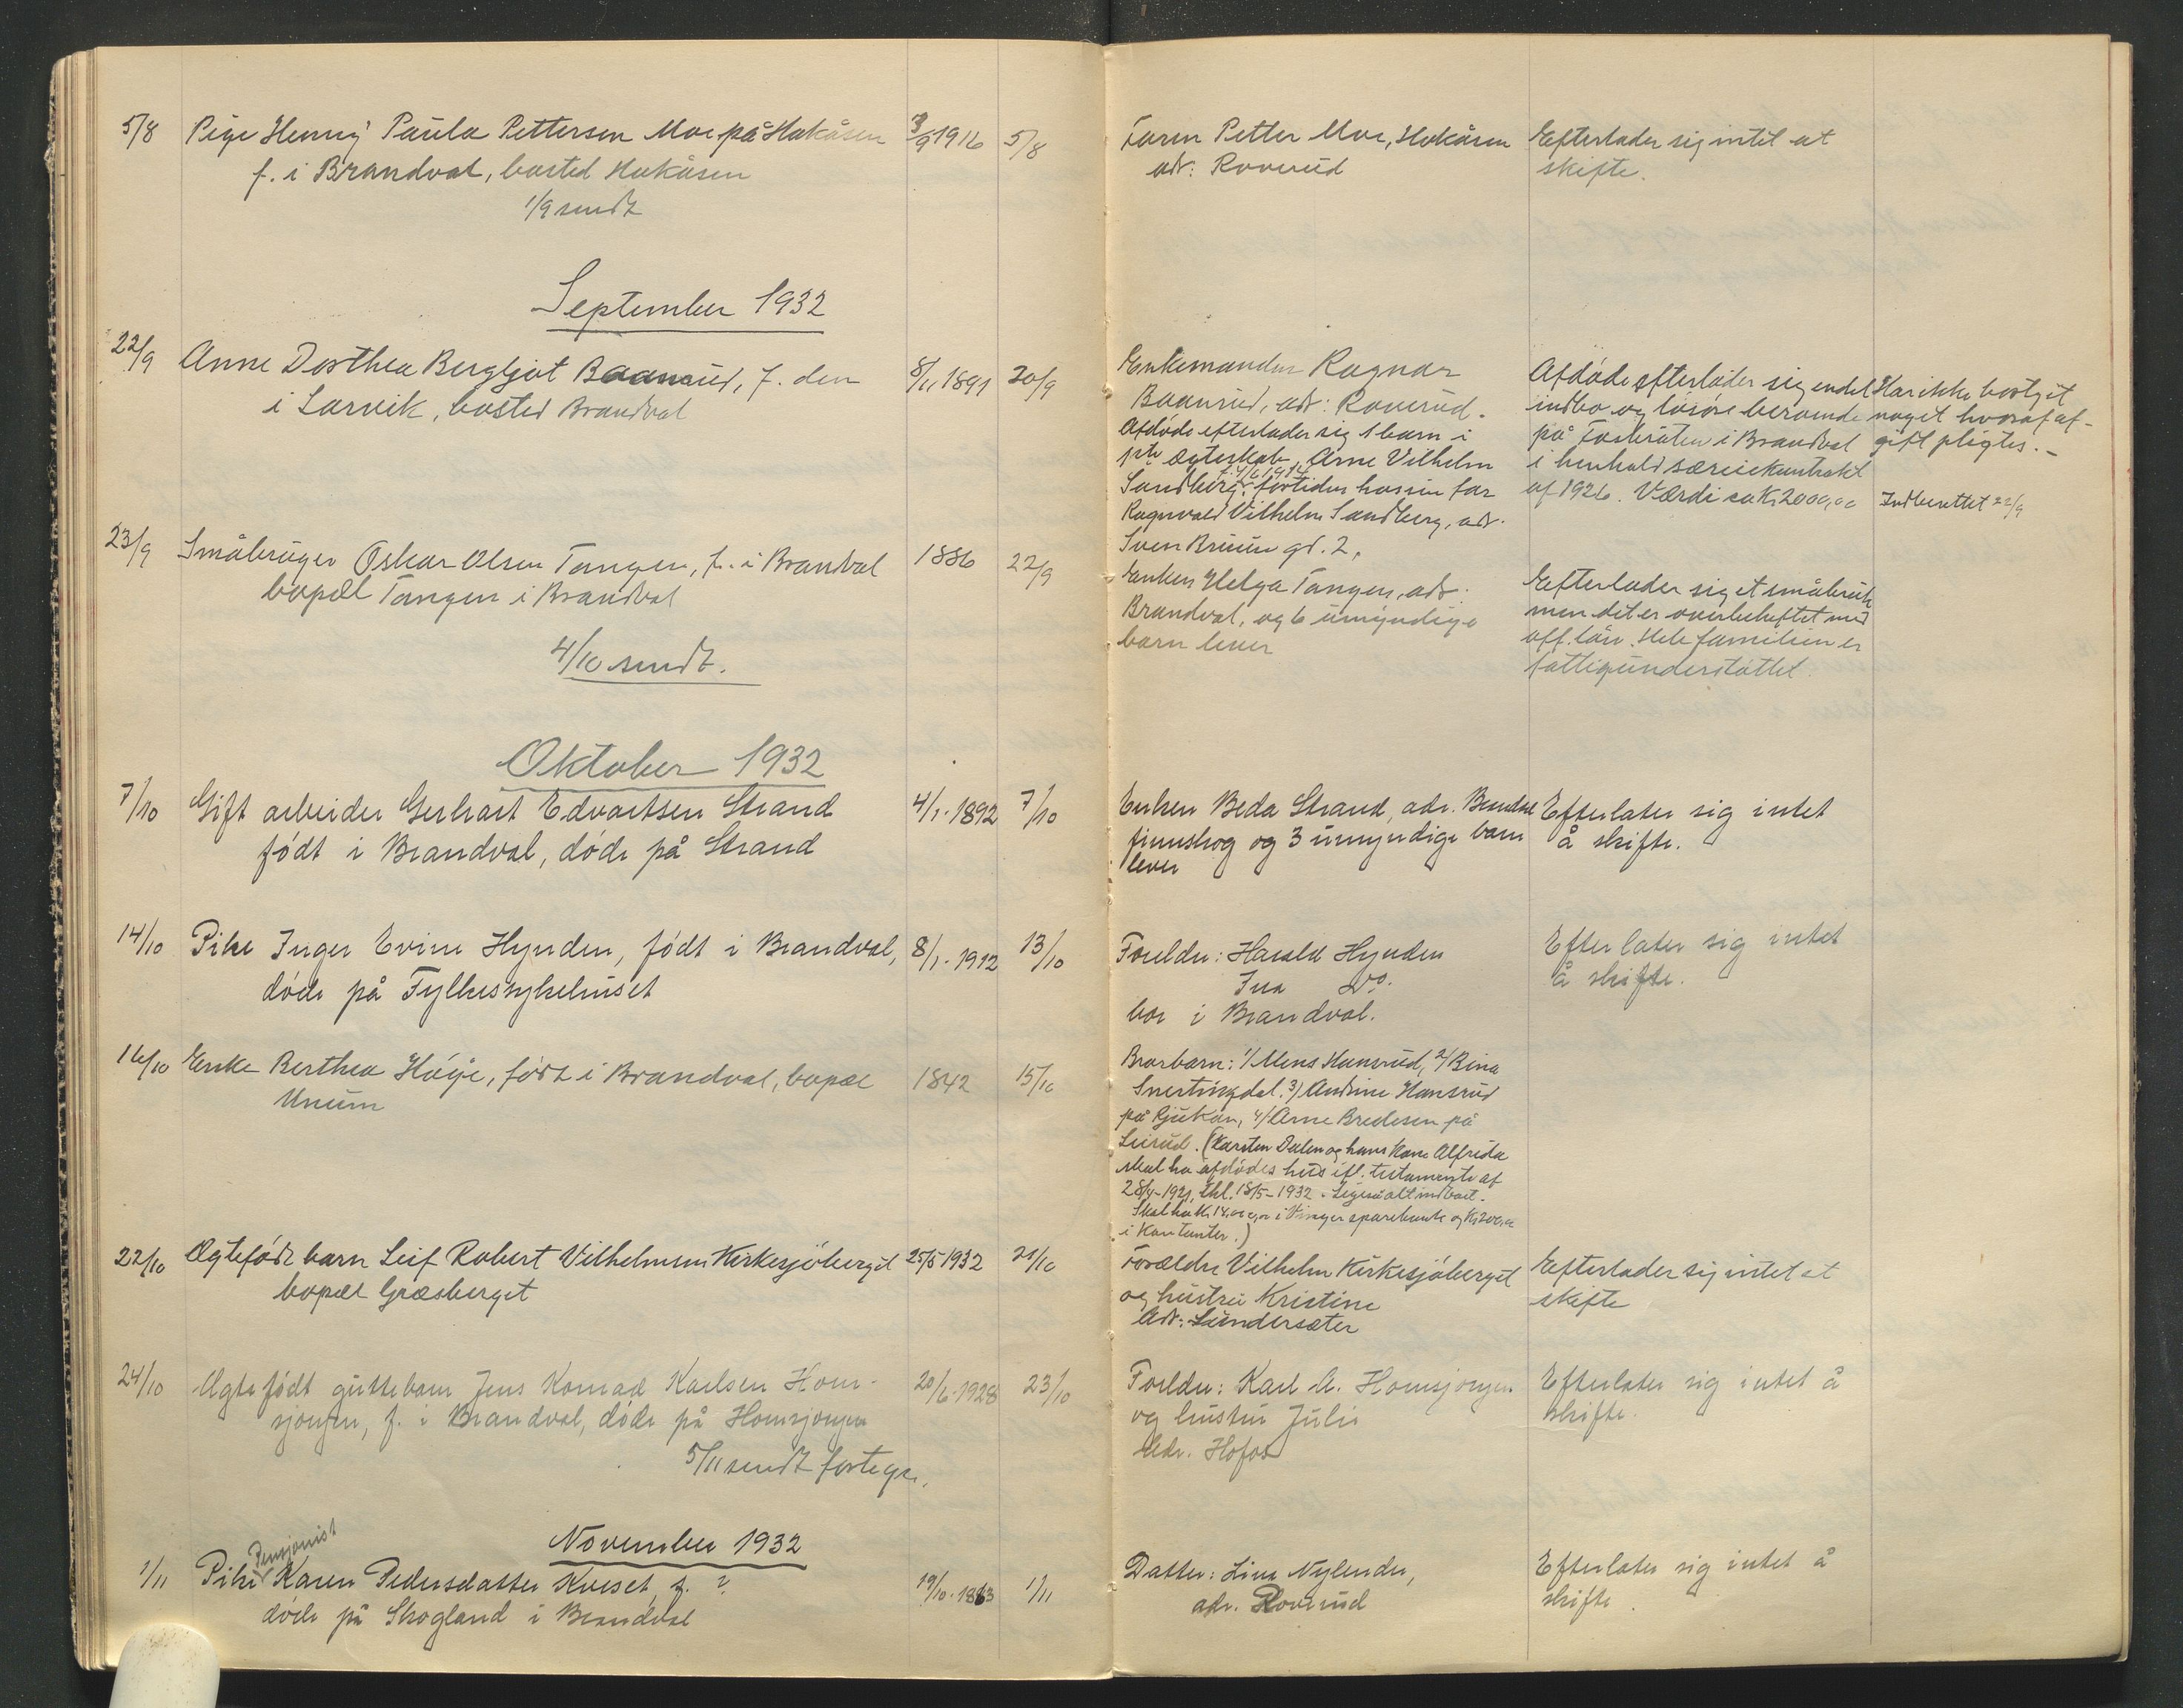 5/8 Pige Henny Paula Pettersen Moe på Hokåsen 3/9 1916 5/8
f. i Brandval, bosted Hokåsen
1/9 sendt
Faren Petter Moe, Hokåsen
adr: Roverud
Efterlader sig intet at
skifte.
September 1932
22/9 Anne Dorthea Bergljot Baanrud, f. den 8/11 1891 20/9
i Larvik, bosted Brandval
Enkemanden Ragnar
Baanrud, adr: Roverud.
Afdøde efterlader sig 1 barn i
ægteskab, Arne Vilhelm
Sandberg, fortiden hos sin far
Ragnvald Vilhelm Sandberg, adr.
Sven Bruun gd. 2.
Afdøde efterlader sig endel
indbo og løsøre beroende
på Fosbråten i Brandval
i henhold særeiekontrakt
af 1926. Værdi ca K. 2000,00
Har ikke bortgit
noget hvoraf af-
gift pligtes. -
Indberettet 22/9
23/9 Småbruger Oskar Olsen Tangen, f. i Brandval 1886 22/9
bopæl Tangen i Brandval
4/10 sendt.
Enken Helga Tangen, adr:
Brandval, og 6 umyndige
barn lever
Efterlader sig et småbruk
men det er overbeheftet med
off. lån. Hele familien er
fattigunderstøttet.
Oktober 1932
7/10 Gift arbeider Gerhart Edvartsen Strand 4/1. 1892 7/10
født i Brandval, døde på Strand
Enken Beda Strand, adr. Brandval
finnskog og 3 umyndige barn
lever
Efterlater sig intet
å skifte.
14/10 Pike Inger Evine Hynden, født i Brandval, 8/1. 1912 13/10
døde på Fylkessykehuset
Foreldre: Harald Hynden
Ina Do.
bor i Brandval.
Efterlater sig intet
å skifte.
16/10 Enke Berthea Høije, født i Brandval, bopæl 1842 15/10
Unum
Brorbarn: 1/ Mens Hansrud, 2/ Bina
Snertingdal. 3) Andrine Hansrud
på Rjukan, 4/ Arne Bredesen på
Leirud. (Karsten Dalen og hans kone Alfrida
skal ha afdødes hus ifl. testamente af
28/4-1921, thl. 18/5-1932. Ligeså alt indboet.
Skal ha K. 14.000,00 i Vinger sparebank og K. 200,00
i kontanter.)
22/10 Ægtefødt barn Leif Robert Vilhelmsen Kirkesjøberget 25/5 1932 21/10
bopæl Græsberget
Forældre Vilhelm Kirkesjøberget
og hustru Kristine
Adr: Lundersæter
Efterlader sig intet at
skifte
24/10 Ægtefødt guttebarn Jens Konrad Karlsen Hom- 20/6. 1928 23/10
sjøngen, f. i Brandval, døde på Homsjøngen
5/11 sendt fortegn.
Foreldre: Karl A. Homsjøngen
og hustru Julie
Adr. Hofos
Efterlater sig intet å
skifte.
November 1932
Pensjonist
1/11 Pike Karen Pedersdatter Kveset, f. ? 19/10. 1863 1/11
døde på Skogland i Brandval
Datter: Lina Nylende,
adr. Roverud
Efterlater sig intet å
skifte.